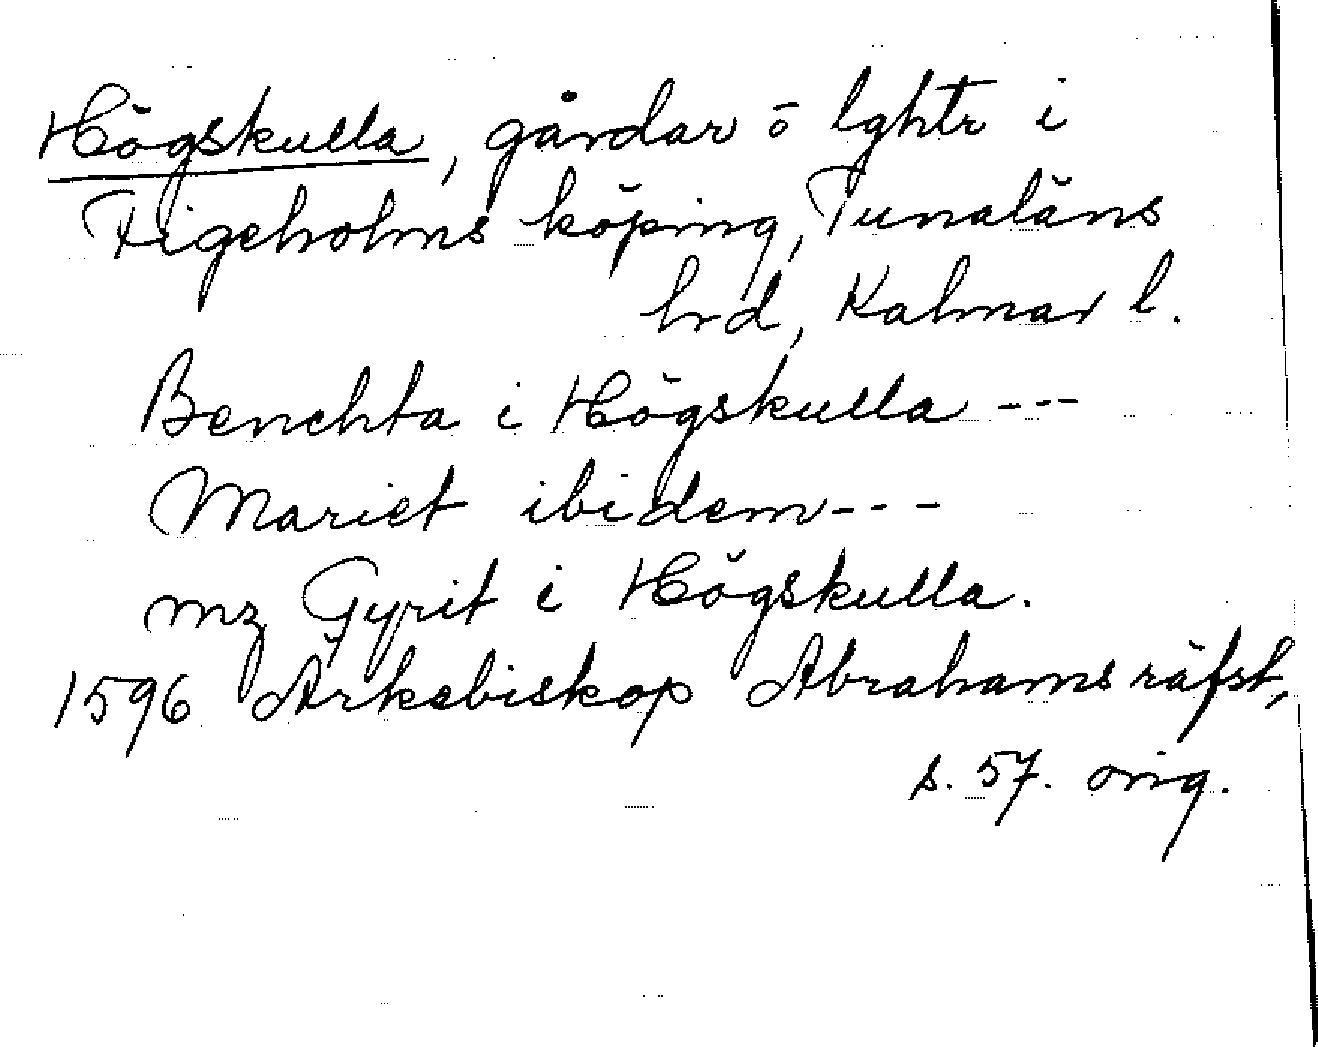 Högskulla, gårdar o lghtr i
Figeholms köping, Tunaläns
hrd, Kalmar l.
Benchta i Högskulla ---
Mariet ibidem ---
mz Gyrit i Högskulla.
1596 Ärkebiskop Abrahams räfst,
s. 57. orig.